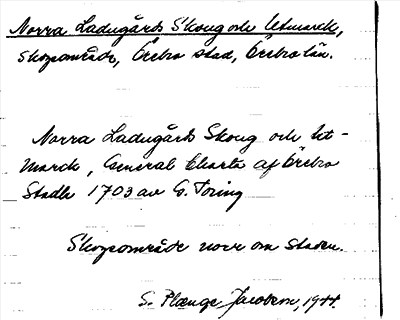 Norra Ladugårds Skoug och Utmarck,
Skogsområde, Örebro stad, Örebro län.
Norra Ladugårds Skoug och Ut-
marck, General Charta af Örebro
Stadh 1703 av G. Toring
Skogsområde norr om staden.
S. Plænge Jacobson, 1944.